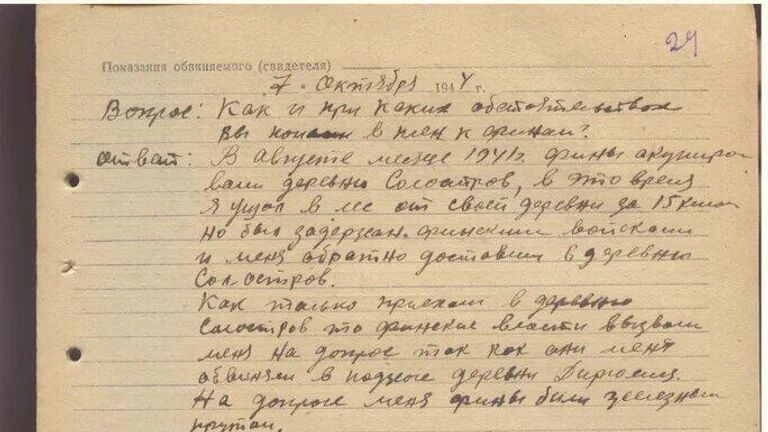 24
Показания обвиняемого (свидетеля)
7 " октября 1944 г.
Вопрос: Как и при каких обстоятельствах
вы попали в плен к финам?
Ответ: В августе месяце 1941 г. фины акупиро
вали деревню Солостров, в это время
я ушол в лес от своей деревни за 15 килом
но был задержан финскими войсками
и меня обратно доставили в деревню
Солостров.
Как только приехали в деревню
Солостров то финские власти вызвали
меня на допрос так как они меня
обвиняли в поджоге деревни
На допросе меня фины били железным
прутом.